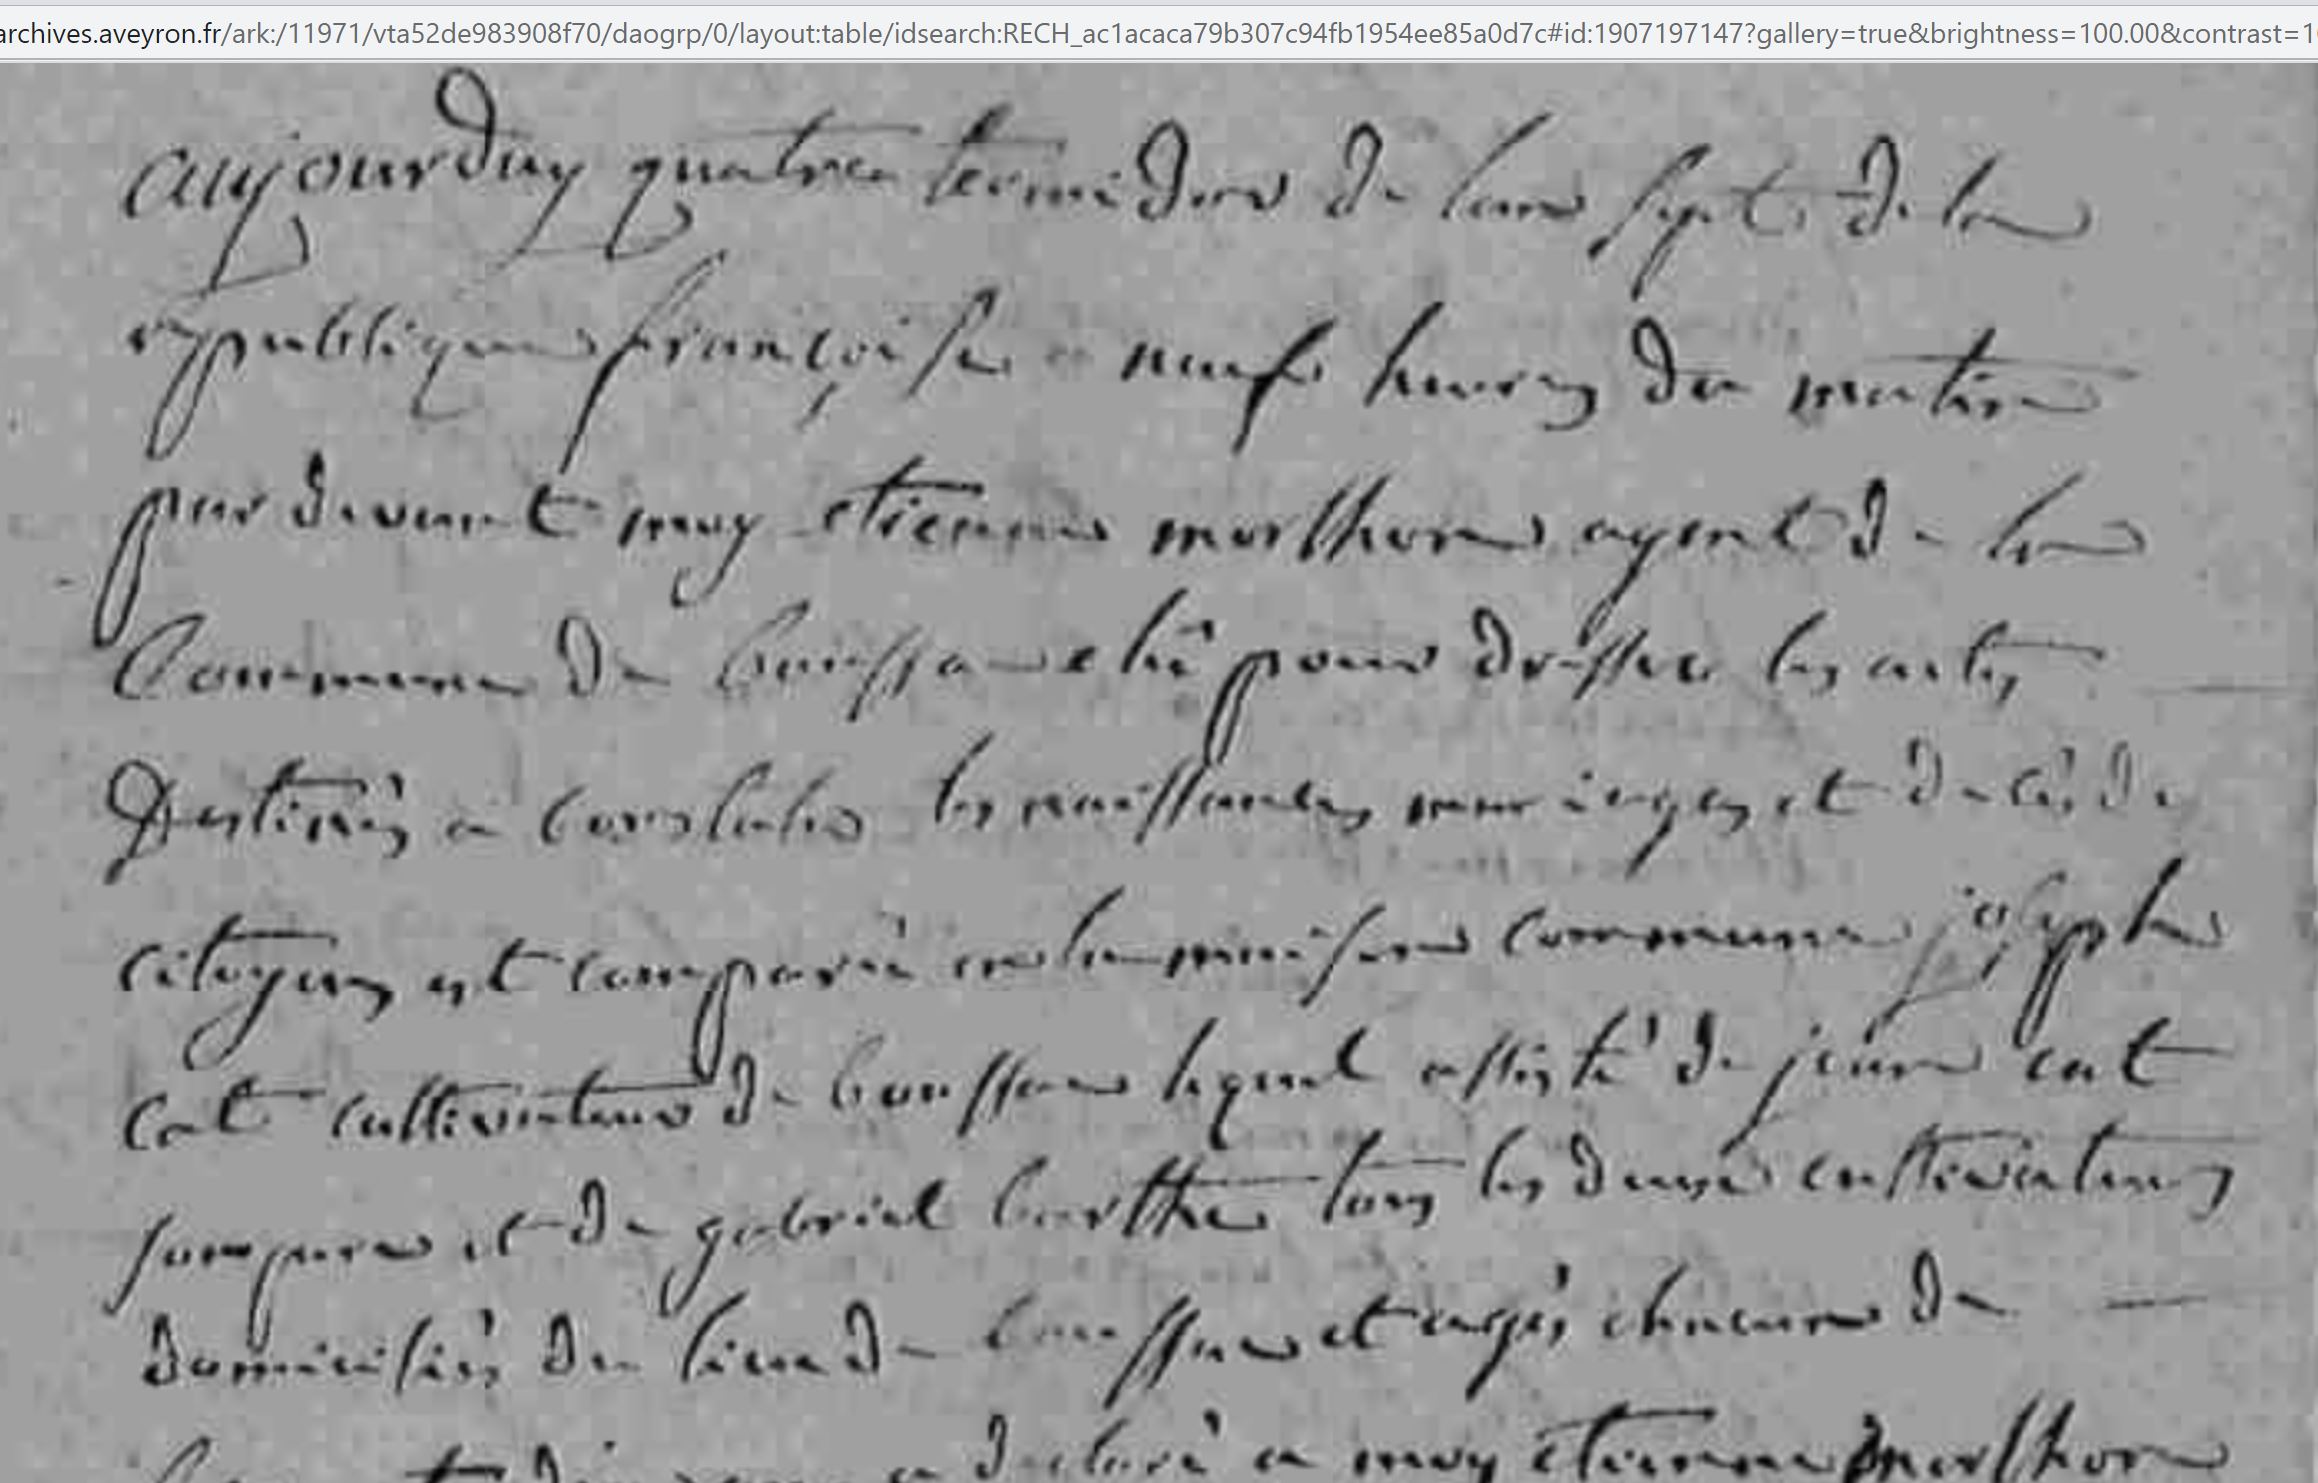 archives.aveyron.fr/ark:/11971/vta52de983908f70/daogrp/0/layout:table/idsearch:RECH_ac1acaca79b307c94fb1954ee85a0d7c#id:1907197147?gallery=true&brightness=100.00&contrast=1
aujourduy quatre termidor de lan sept de la
republique françoise a neuf heures du matin
par devant moy etienne morlhon agent de la
commune de elu pour dresser les actes
destinés a constater les naissances mariages et decés de
citoyens est comparu en la maison commune joseph
cat cultivateur de boussac lequel assisté de jean cat
son pere et de gabriel barthe tous les deux cultivateurs
domiciliés du lieu de boussac et agés chacun de
a declaré a moy etienne morlhon